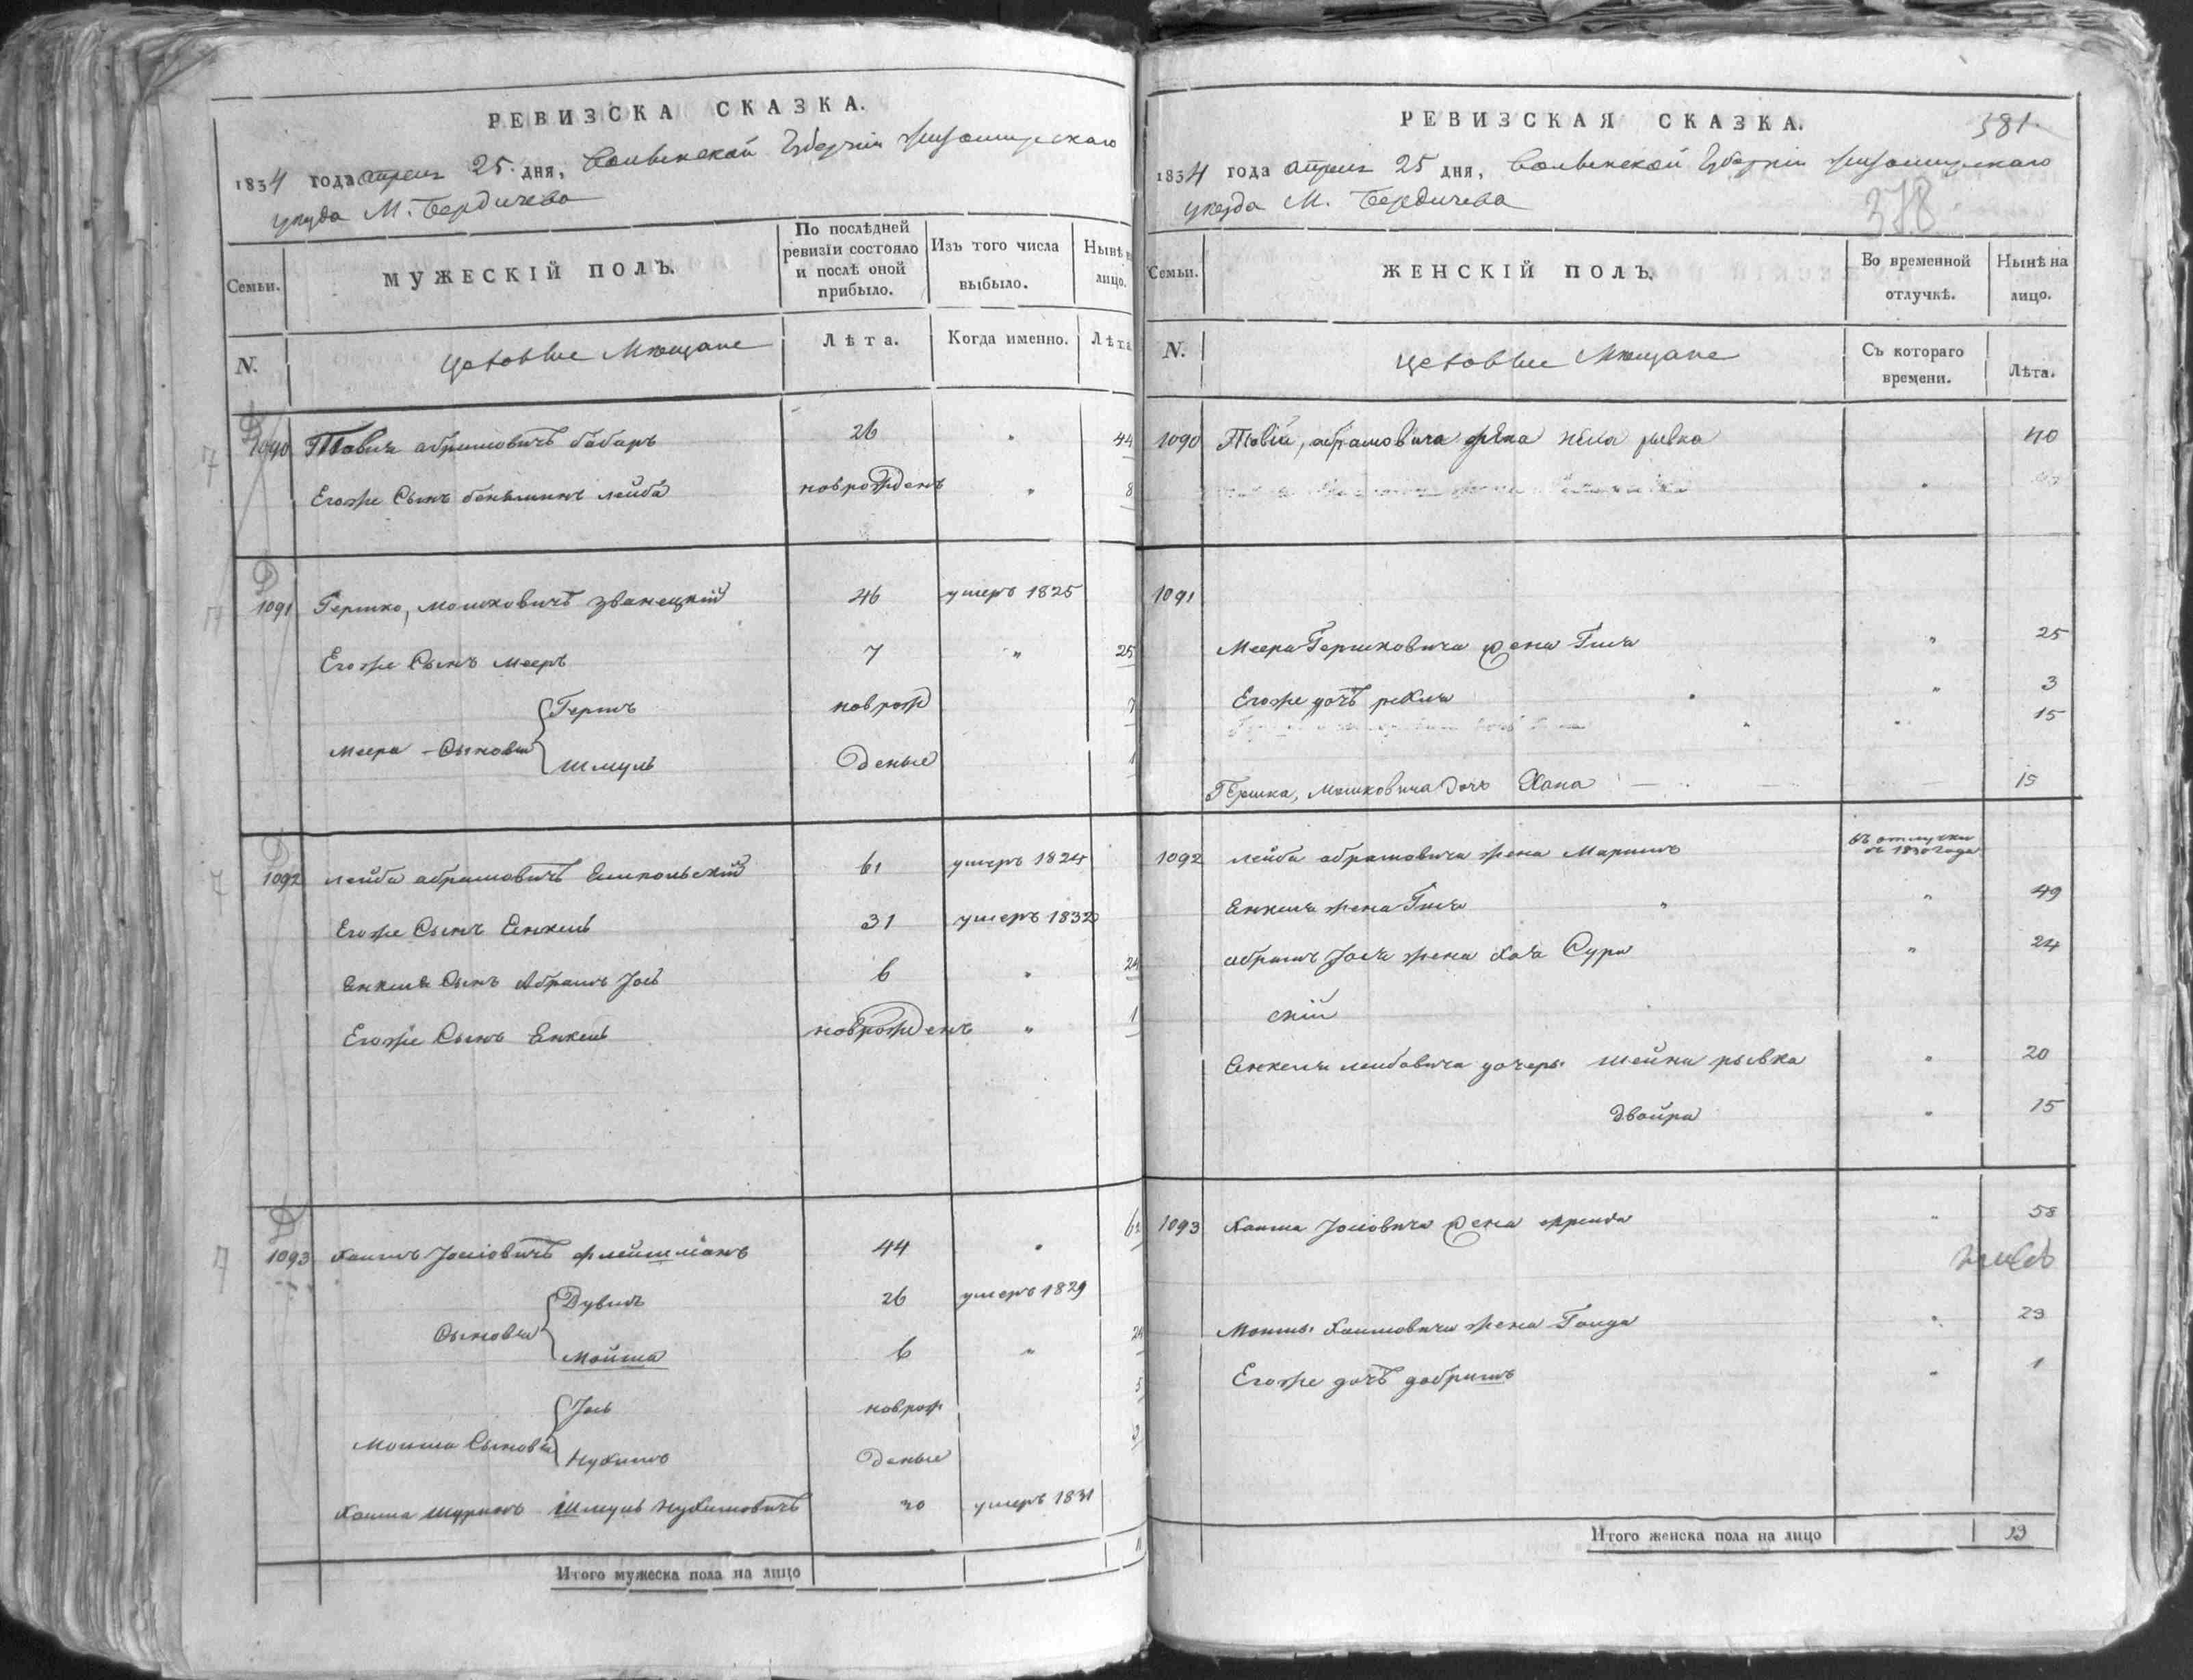 РЕВИЗСКА СКАЗКА.
1834 года апреля 25 дня, Волынской Губерніи Житомирскаго
уезда М. Бердичева
Семьи.
МУЖЕСКІЙ ПОЛЪ.
По послѣдней ревизіи состояло и послѣ оной прибыло.
Изъ того числа выбыло.
Нынѣ на лицо.
N.
Цеховые Мещане
Лѣта.
Когда именно.
Лѣта
1090 Товия абрамовичъ бобаръ 26 " 44
Егоже Сынъ беньминъ лейба новрожденъ " 8
1091 Гершко, Мошковичъ званецкій 46 умеръ 1825
Егоже Сынъ Мееръ 7 " 25
Меера Сыновья
Гершъ новрож 7
Шмуль деные 1
1092 лейба абрамовичъ 61 умеръ 1824
Егоже Сынъ Енкель 31 умеръ 1832
Енкеля Сынъ Абрамъ Іось 6 " 24
Егоже Сынъ Енкель новрожденъ " 1
1093 Хаимъ Іосіовичъ флейшманъ 44 " 62
Сыновья
Дувидъ 26 умеръ 1829
Мойша 6 " 24
Моиша Сыновья
Іось новрож 5
Нухимъ деные 2
Хаима шуринъ Шмуль Нухимовичъ 30 умеръ 1831
Итого мужеска пола на лицо 11
РЕВИЗСКАЯ СКАЗКА.
381.
1834 года апреля 25 дня, Волынской Губерніи Житомирскаго
уезда М. Бердичева
378
Семьи.
ЖЕНСКІЙ ПОЛЪ.
Во временной отлучкѣ.
Нынѣ на лицо.
N.
Цеховые Мещане
Съ котораго времени.
Лѣта.
1090 Товіи, абрамовича жена рывка 40
1091
Меера Гершковича жена Гитя " 25
Егоже дочъ " 3
" 15
Гершка, Мошковича дочь Хана 15
1092 лейба абрамовича жена Маримъ въ отлучки съ 1830 года
Енкеля жена Гитя " 49
абрамъ Іося жена Хая Сура " 24
скій
Енкеля лейбовича дочеръ шейна рывка " 20
двойра " 15
1093 Хаима Іосіовича жена фрейда " 58
Моиши Хаимовича жена Голда " 23
Егоже дочъ добришъ " 1
Итого женска пола на лицо 13